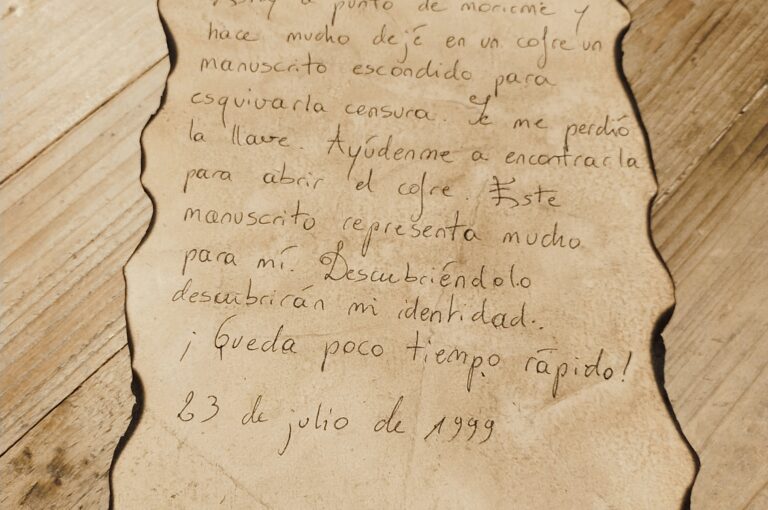 Estoy a punto de morirme y
hace mucho dejé en un cofre un
manuscrito escondido para
esquivarla censura. Se me perdió
la llave. Ayúdenme a encontrarla
para abrir el cofre. Este
manuscrito representa mucho
para mí. Descubriéndolo
descubrirán mi identidad..
¡Queda poco tiempo rápido!
23 de julio de 1999